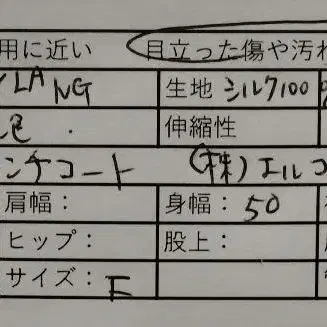 用に近い 目立った傷や汚れ
YLANG 生地 シルク100
色 伸縮性
ンチコート (株)エルコ
肩幅： 身幅：50
ヒップ： 股上：
サイズ：F